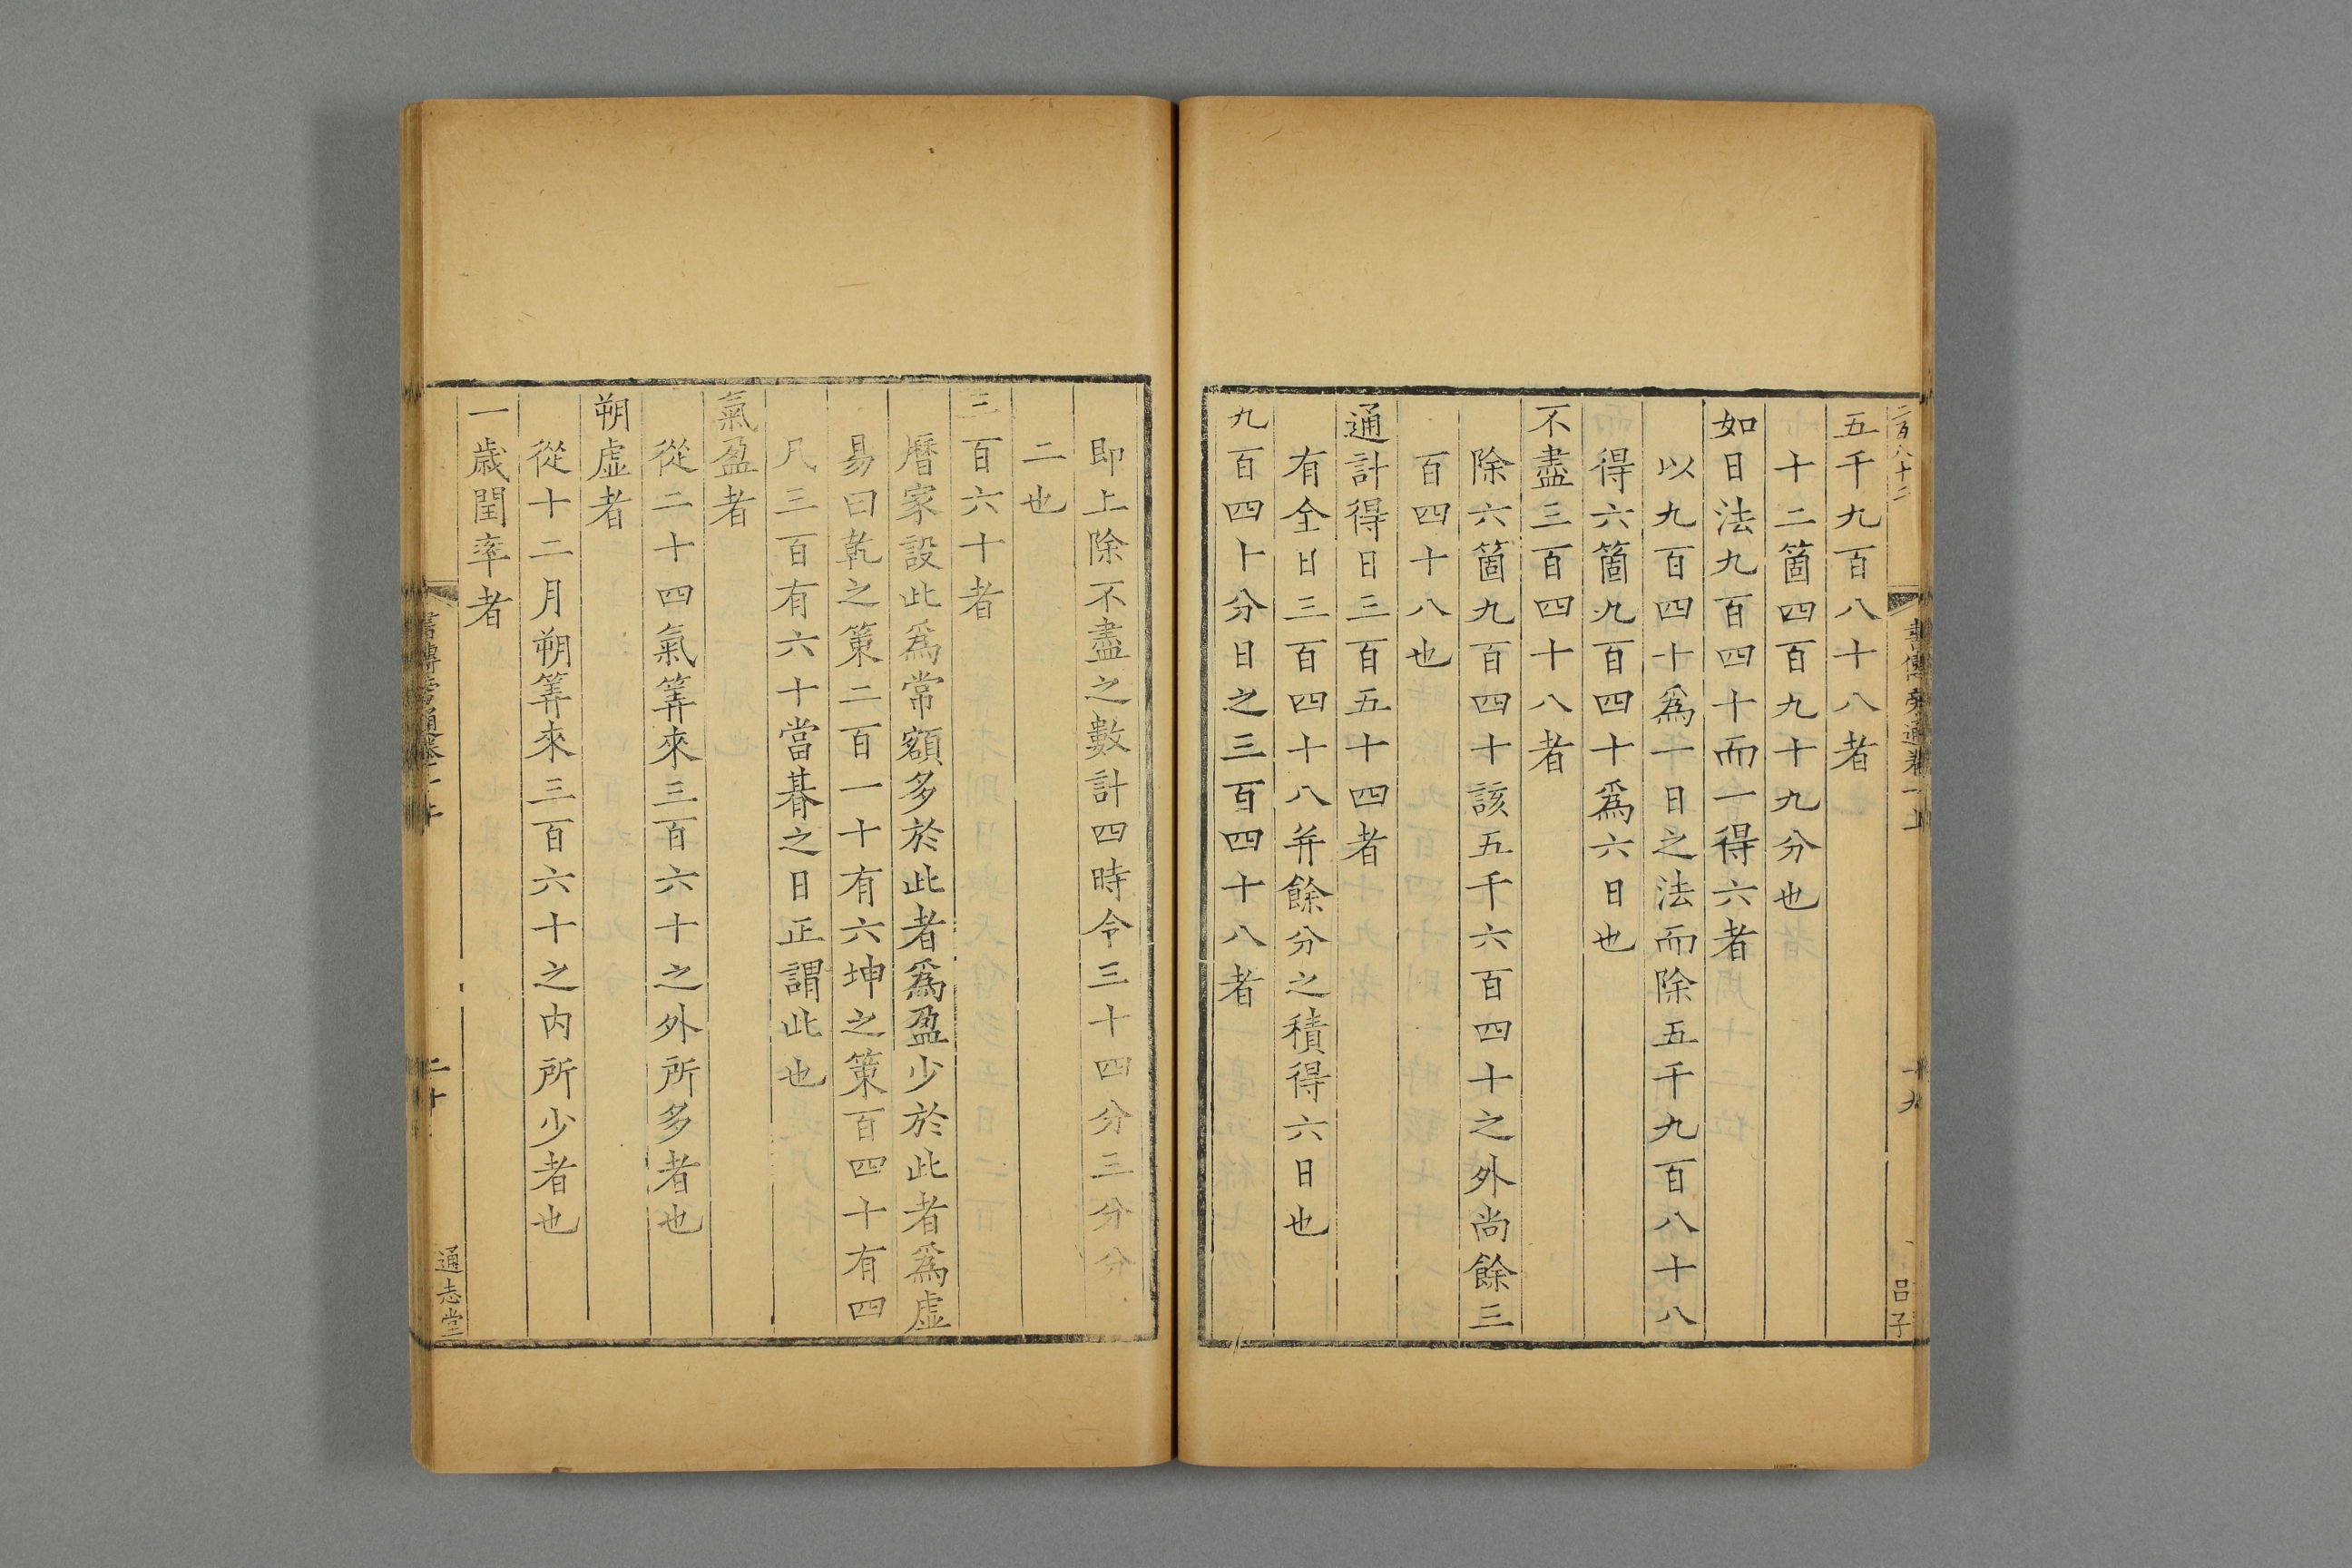 二百八十二
書傳旁通卷一上
十九
呂子
五千九百八十八者
十二箇四百九十九分也
如日法九百四十而一得六者
以九百四十爲一日之法而除五千九百八十八
得六箇九百四十爲六日也
不盡三百四十八者
除六箇九百四十該五千六百四十之外尚餘三
百四十八也
通計得日三百五十四者
有全日三百四十八并餘分之積得六日也
九百四十分日之三百四十八者
即上除不盡之數計四時令三十四分三分分
二也
三百六十者
曆家設此爲常額多於此者爲盈少於此者爲虛
易曰乾之策二百一十有六坤之策百四十有四
凡三百有六十當朞之日正謂此也
氣盈者
從二十四氣筭來三百六十之外所多者也
朔虛者
從十二月朔筭來三百六十之内所少者也
一歲閏率者
書傳旁通卷一上
二十
通志堂